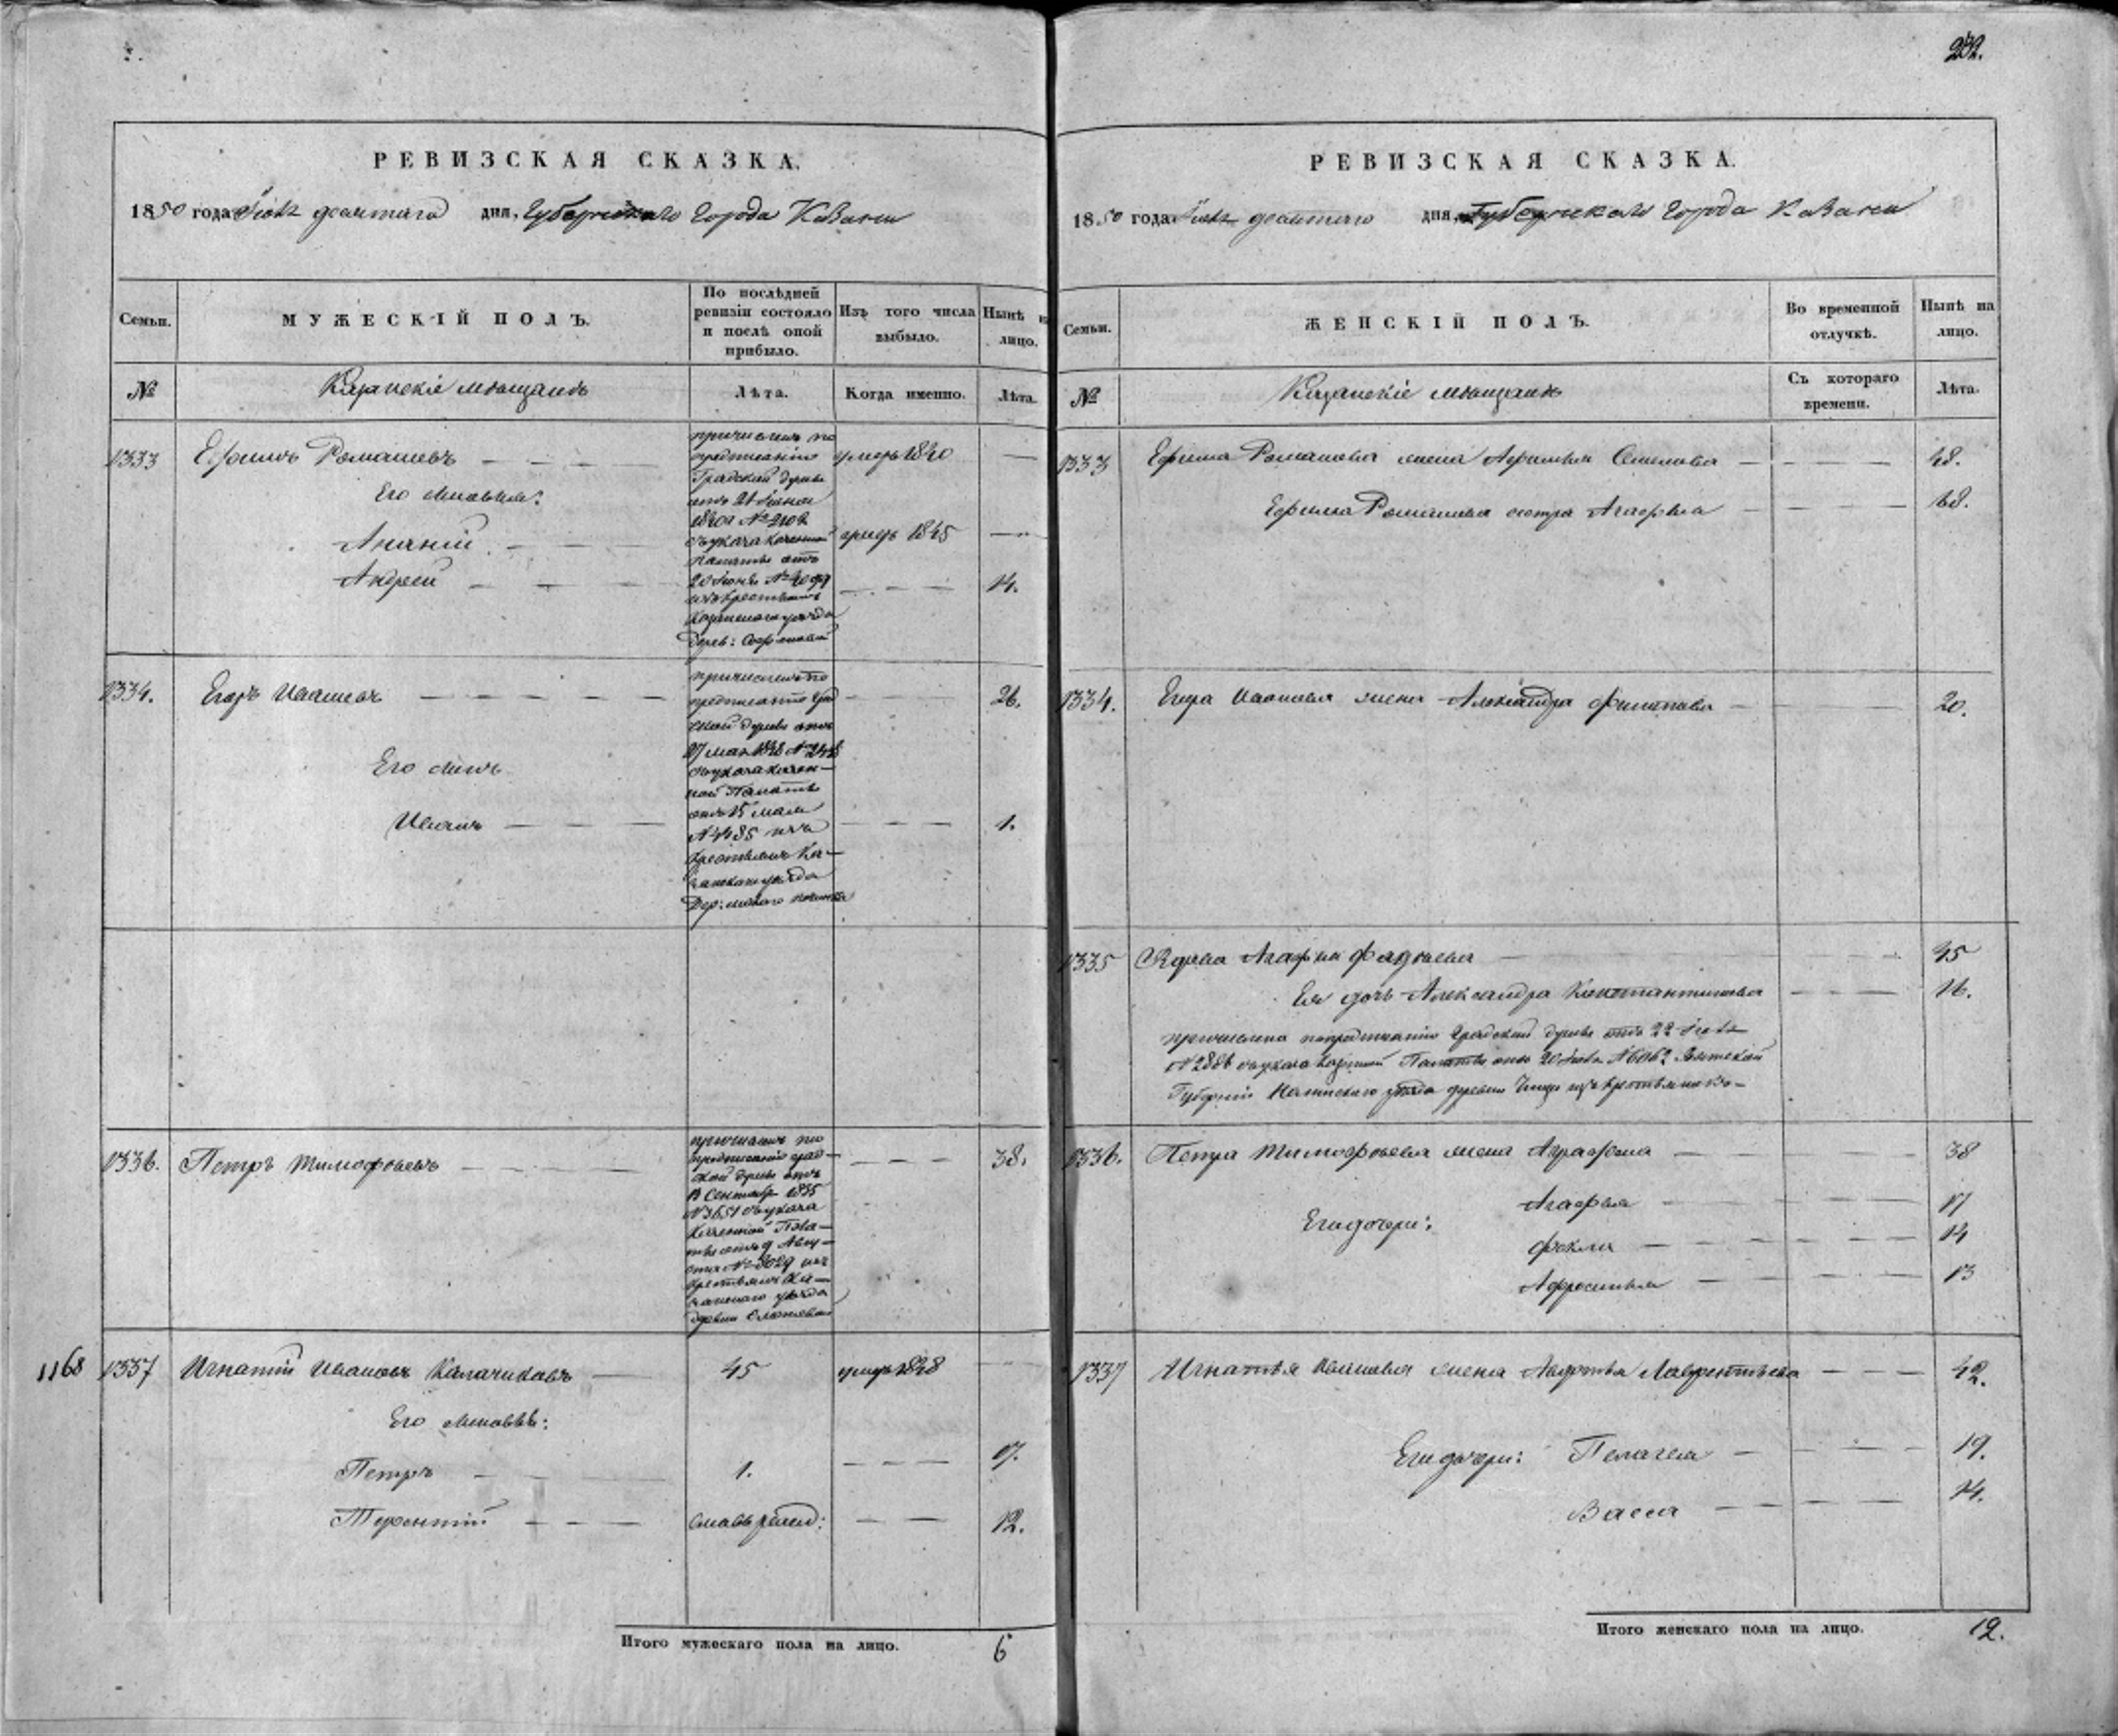 232.
РЕВИЗСКАЯ СКАЗКА.
1850 года десятаго дня, Губернскаго Города Казани
Семьи. МУЖЕСКІЙ ПОЛЪ. По послѣдней ревизіи состояло и послѣ оной прибыло. Изъ того числа выбыло. Нынѣ на лицо.
№ Казанскіе мѣщане Лѣта. Когда именно. Лѣта.
1333 Ефимъ Романовъ умеръ 1840 —
Его сыновья:
Ананій умеръ 1845 —
Андрей 14.
причисленъ по
предписанію
Градской думы
отъ 21
№
съ указа казенной
палаты отъ
20
изъ крестьянъ
Казанскаго уѣзда
дерев:
1334. Егоръ Ивановъ 26.
Его сынъ
Иванъ 1.
причисленъ по
предписанію град
ской думы отъ
27 мая
съ указа казен—
ной Палаты
отъ 15 мая
№ 4485 изъ
крестьянъ Ка—
занскаго уѣзда
Дер:
1336. Петръ Тимофѣевъ 38.
причисленъ по
предписанію град—
ской думы отъ
13 Сентября 1835
№ 3651 съ указа
Казенной Пала—
ты отъ 9 Авгу—
ста № 8029 изъ
крестьянъ Ка—
занскаго уѣзда
деревни
1168 1337 Игнатій Ивановъ Калачиковъ 45 умеръ 1848
Его сыновья:
Петръ 1. 17.
Терентій 12.
Итого мужескаго пола на лицо. 6
РЕВИЗСКАЯ СКАЗКА.
1850 года десятаго дня, Губернскаго Города Казани
Семьи. ЖЕНСКІЙ ПОЛЪ. Во временной отлучкѣ. Нынѣ на лицо.
№ Казанскіе мѣщане Съ котораго времени. Лѣта.
1333 Ефима Романова жена Афимья Семенова 48.
Ефима Романова сестра Агафья 68.
1334. Егора Иванова жена Александра Филипова 20.
1335 Вдова Агафья Фадѣева 45
Ея дочь Александра Константинова 16.
причислена по предписанію Градской думы отъ 22
съ указа Казенной Палаты отъ 20 № 6062 Вятской
Губерніи уѣзда деревни изъ крестьянокъ
1336. Петра Тимофѣева жена Аграфена 38
Его дочери: Агафья 17
Фекла 14
Афросинья 13
1337 Игнатья Иванова жена Авдотья Лаврентьева 42.
Его дочери: Пелагея 19.
Васса 14.
Итого женскаго пола на лицо. 12.